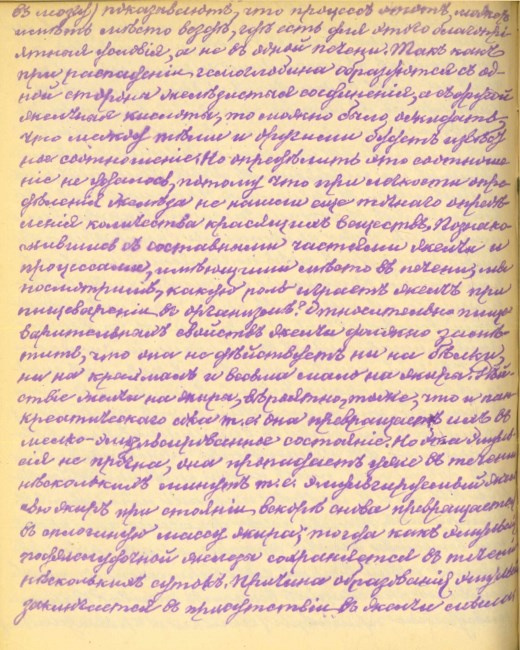 въ мозгу) показываютъ, что процессъ этотъ можетъ
имѣть мѣсто вездѣ, гдѣ есть для этого благопрі-
ятныя условія, а не въ одной печени. Такъ какъ
при распаденіи гемоглобина образуются съ од-
ной стороны желѣзистыя соединенія, а съ другой
желчныя кислоты, то можно было ожидать,
что между тѣми и другими будетъ извѣст
ное соотношеніе. Но опредѣлить это соотноше
ніе не удалось, потому что при легкости опре
дѣленія желѣза не нашли еще точнаго опредѣ
ленія количества красящихъ веществъ. Познако
мившись съ составными частями желчи и
процессами, имѣющими мѣсто въ печени, мы
посмотримъ, какую роль играетъ желчь при
пищевареніи въ организмѣ? Относительно пище
варительныхъ свойствъ желчи должно замѣ-
тить, что она не дѣйствуетъ ни на бѣлки,
ни на крахмалъ и весьма мало на жиры. Дѣй
ствіе желчи на жиры, вѣроятно, тоже, что и пан-
креатическаго сока т. е. она превращаетъ ихъ въ
мелко-эмульсированное состояніе. Но эта эмуль
сія не прочна, она пропадаетъ уже въ теченіи
нѣсколькихъ минутъ т. е. эмульгируемый желч
ью жиръ при стояніи вскорѣ снова превращается
въ сплошную массу жира; тогда какъ эмульсія
поджелудочной железы сохраняется въ теченіи
нѣсколькихъ сутокъ. Причина образованія эмульсіи
заключается въ присутствіи въ желчи